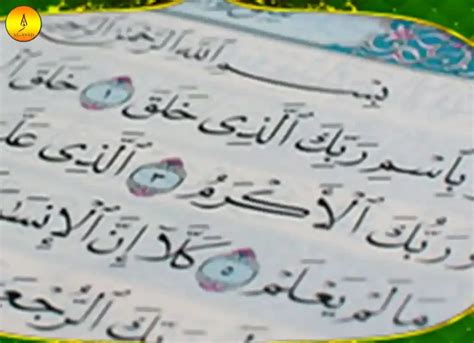 بِسْمِ ٱللَّهِ ٱلرَّحْمَٰنِ ٱلرَّحِيمِ
بِٱسْمِ رَبِّكَ ٱلَّذِى خَلَقَ ١ خَلَقَ
وَرَبُّكَ ٱلْأَكْرَمُ ٣ ٱلَّذِى عَلَّ
مَا لَمْ يَعْلَمْ ٥ كَلَّآ إِنَّ ٱلْإِنسَـ
رَبِّكَ ٱلرُّجْعَ